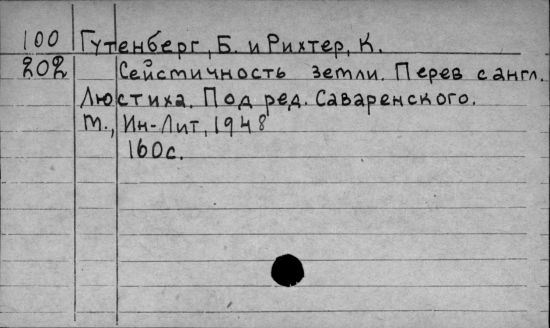 100 Гутенберг, Б. и Рихтер, К.
202 Сейсмичность земли. Перев с англ.
Люстиха. Под ред. Саваренского.
М., Ин-Лит, 1948
160с.